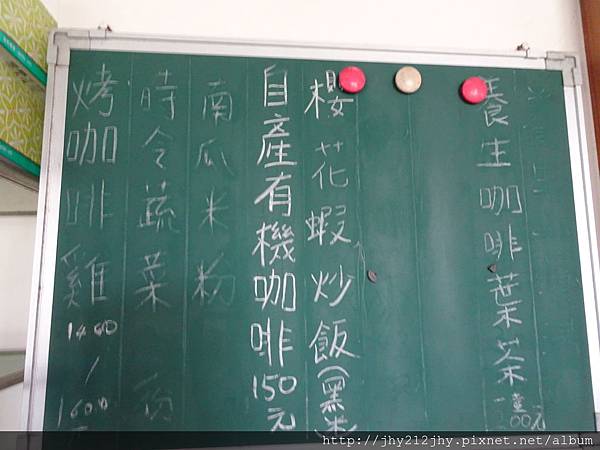 養生咖啡葉茶一壺200元
櫻花蝦炒飯(黑米
自產有機咖啡150元
南瓜米粉
時令蔬菜
烤咖啡雞1400/1600
http://jhy212jhy.pixnet.net/album